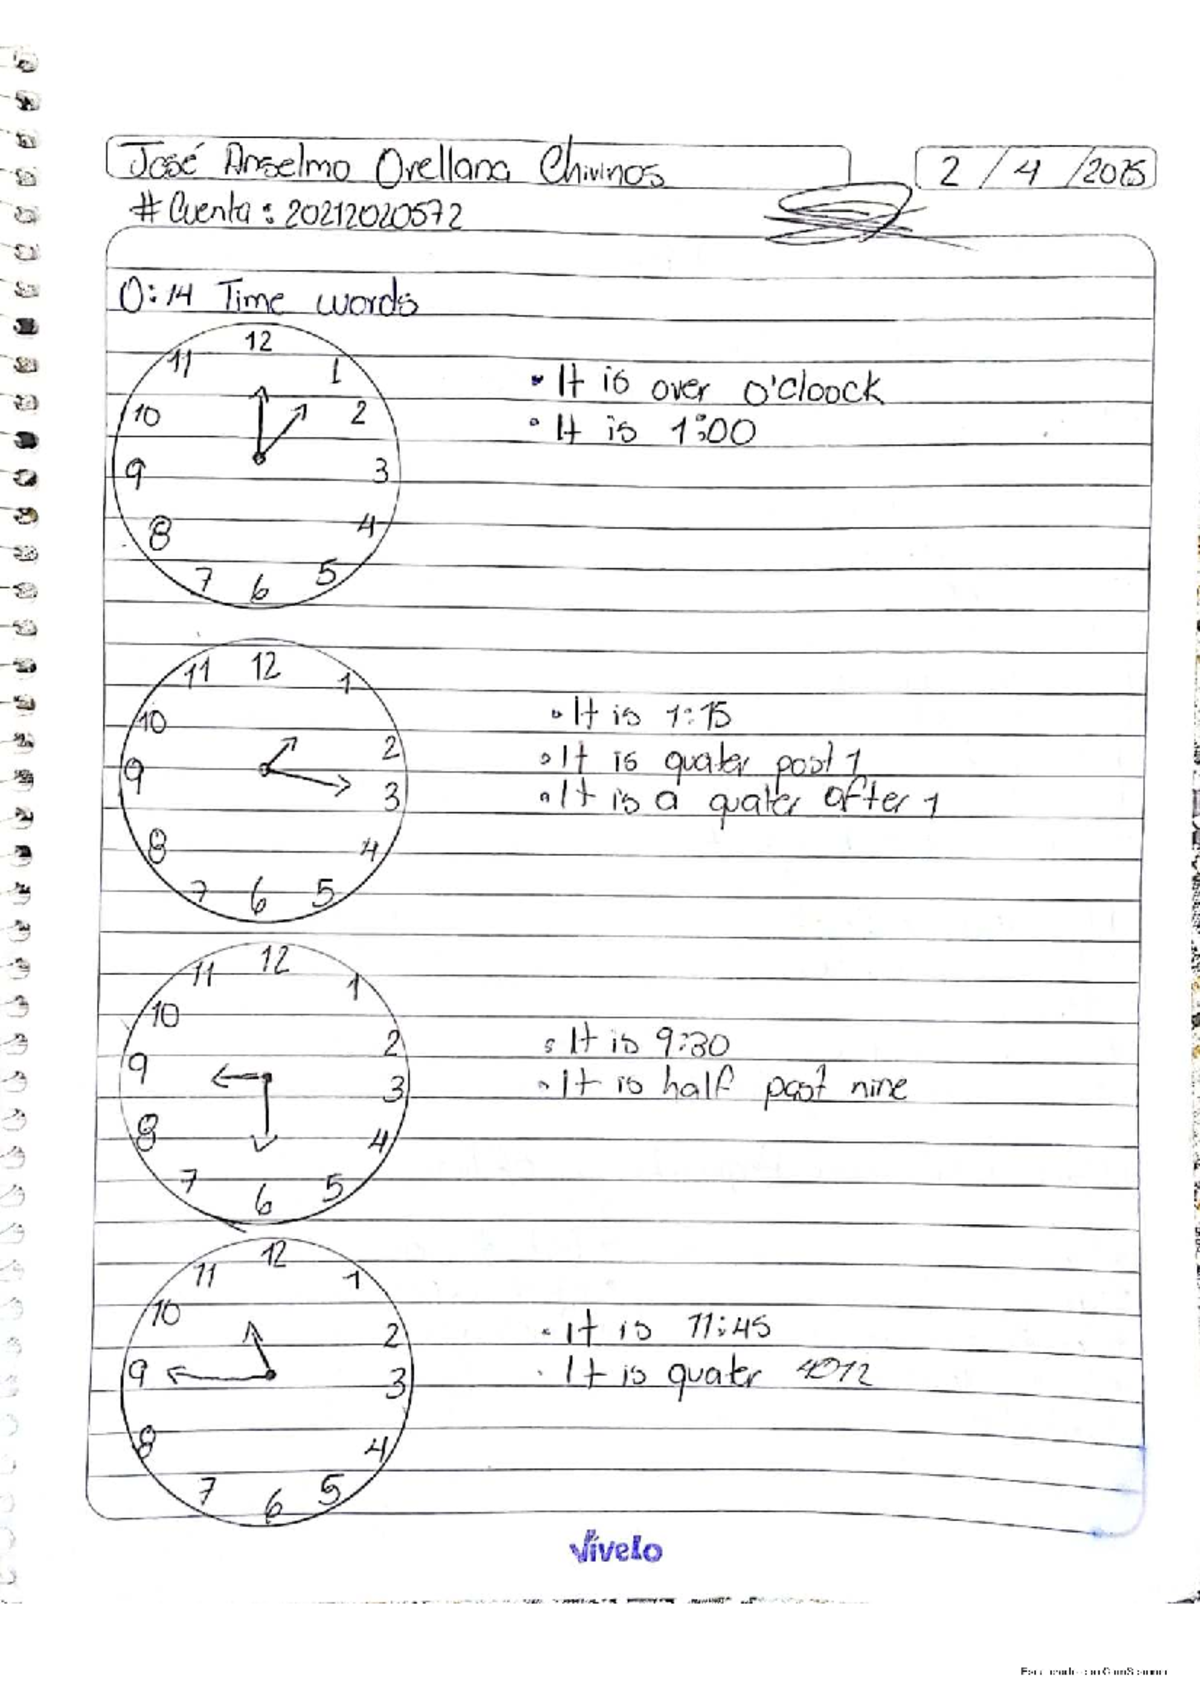 José Anselmo Orellana Chirinos
2/4/2025
#Cuenta: 20212020572
0:14 Time words
12
11
1
10
2
9
3
8
4
7
6
5
• It is over o'cloock
• It is 1:00
11
12
1
10
2
9
3
8
4
7
6
5
• It is 1:15
• It is quater past 1
• It is a quater after 1
11
12
1
10
2
9
3
8
4
7
6
5
• It is 9:30
• It is half past nine
11
12
1
10
2
9
3
8
4
7
6
5
• It is 11:45
• It is quater
Vívelo